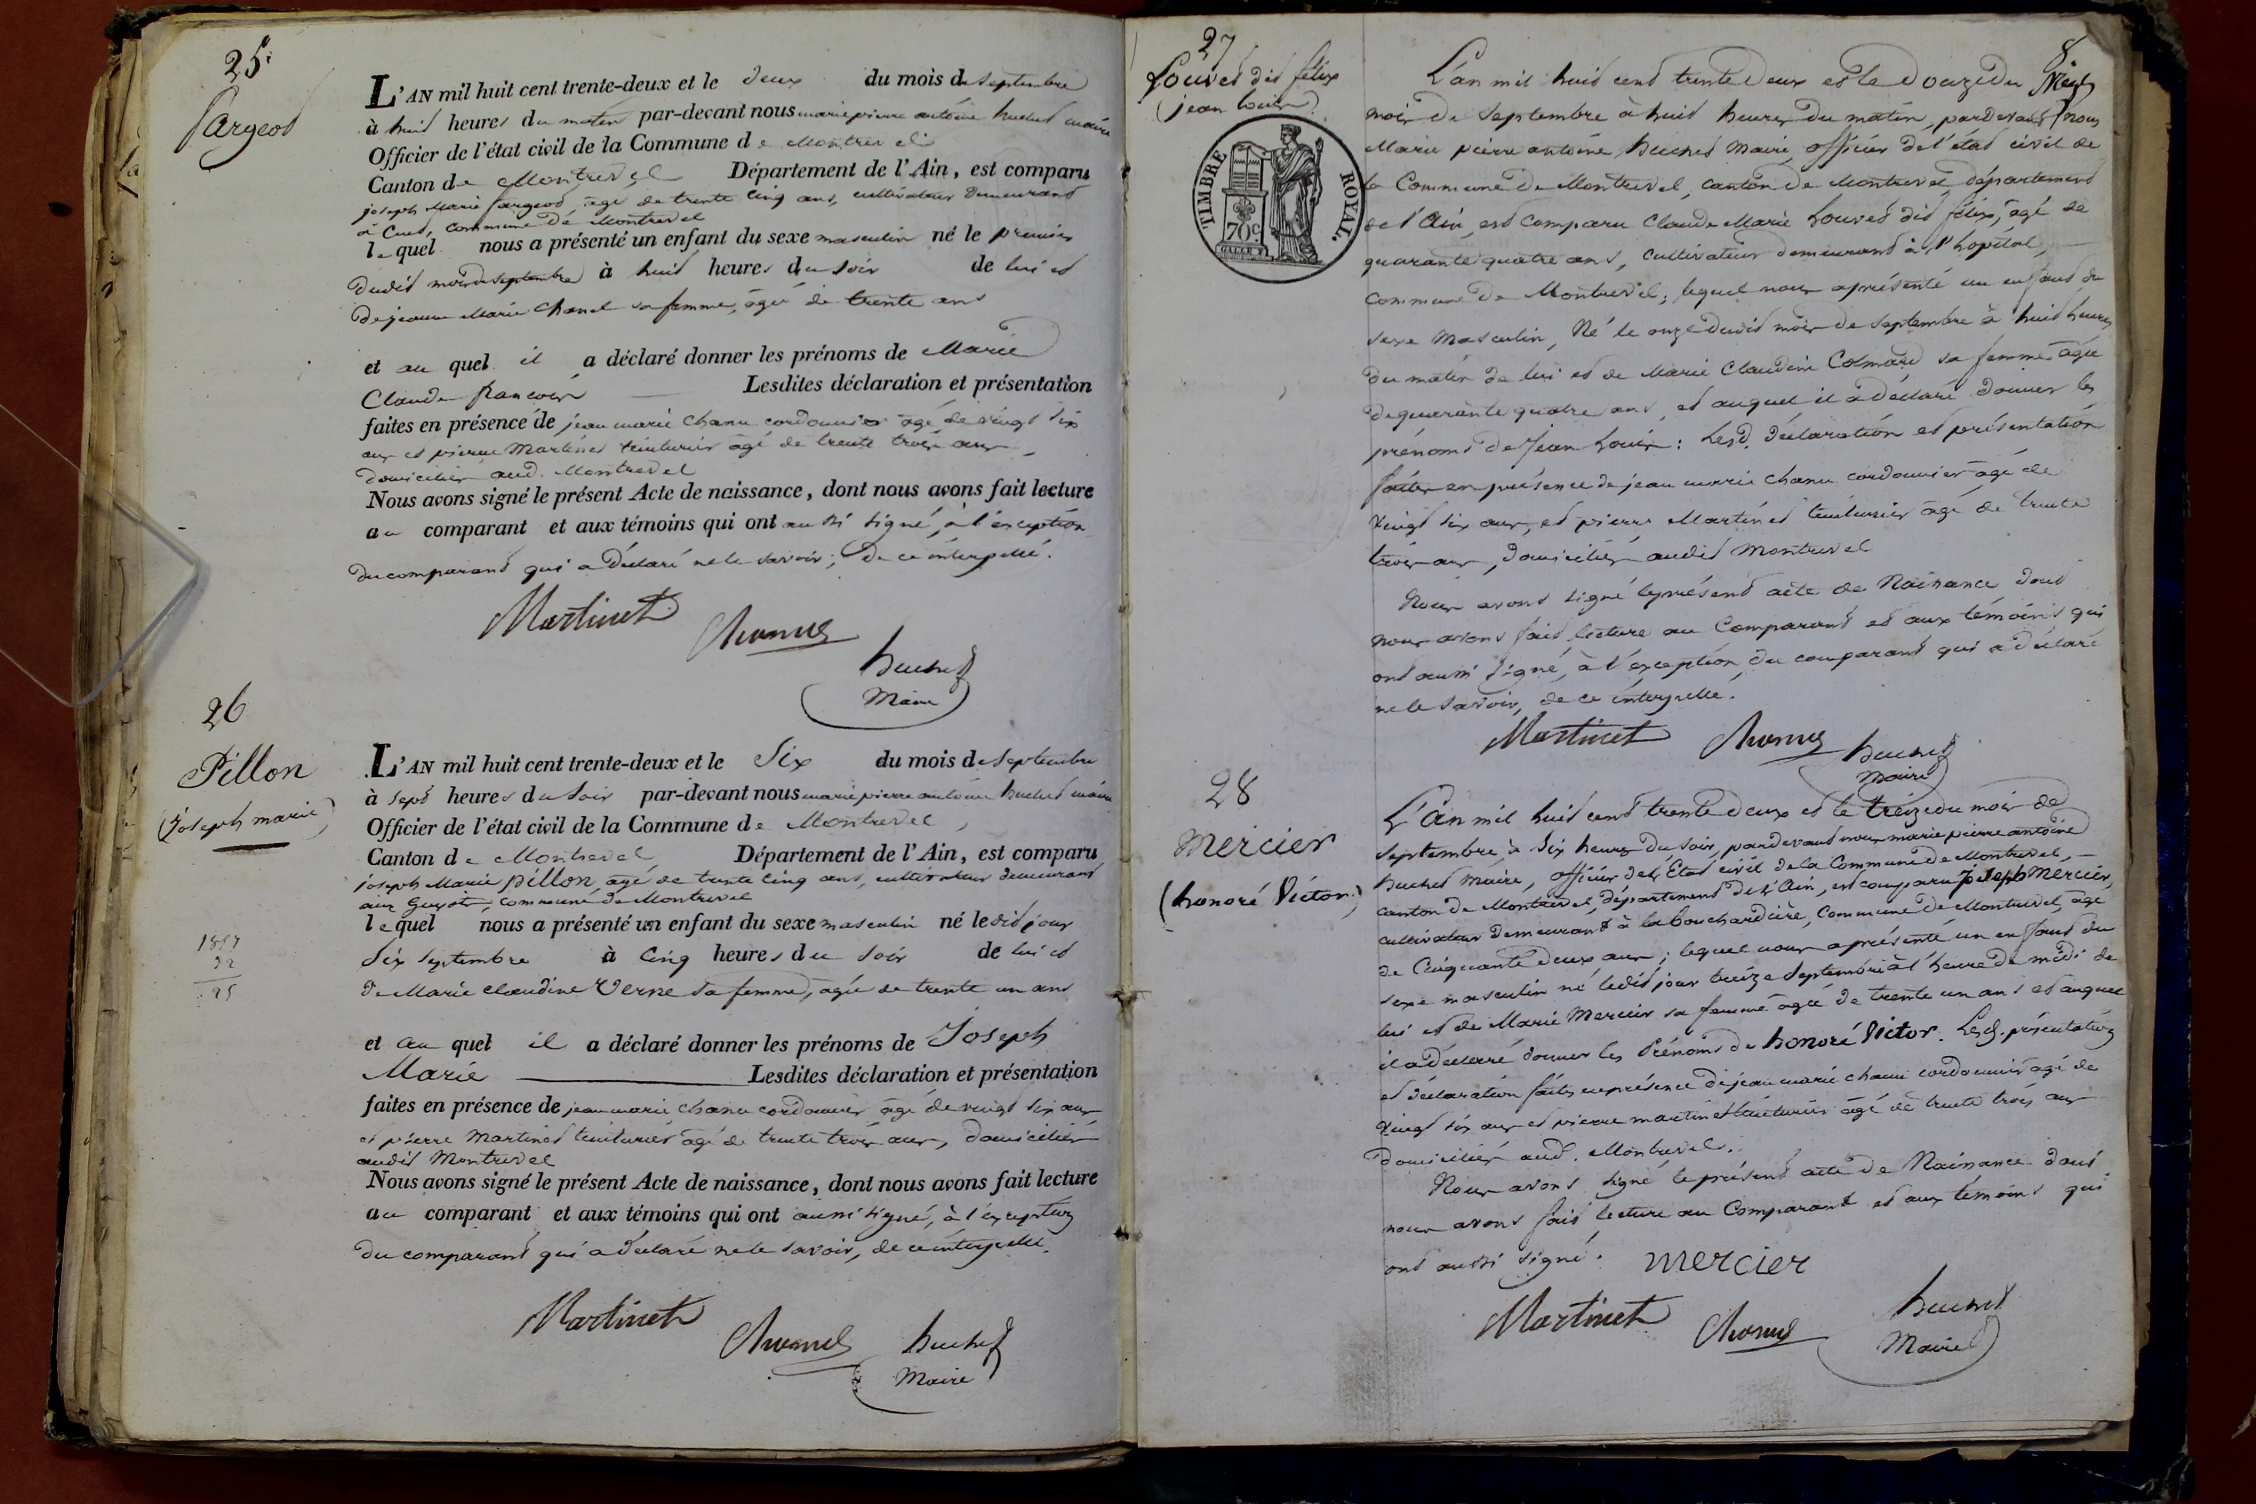 25.
Fargeot
L'AN mil huit cent trente-deux et le deux du mois de septembre
à huit heures du matin par-devant nous marie pierre antoine huchet maire
Officier de l'état civil de la Commune de Montrevel
Canton de Montrevel Département de l'Ain, est comparu
joseph Marie fargeot agé de trente cinq ans, cultivateur demeurant
à Cuet, commune de Montrevel
lequel nous a présenté un enfant du sexe masculin né le premier
dudit mois de septembre à huit heures du soir de lui et
de jeanne Marie Chanel sa femme, âgée de trente ans
et au quel il a déclaré donner les prénoms de Marie
Claude françois Lesdites déclaration et présentation
faites en présence de jean marie chanu cordonnier âgé de vingt six
ans et pierre Martinet teinturier âgé de trente trois ans
domiciliés aud. Montrevel
Nous avons signé le présent Acte de naissance, dont nous avons fait lecture
au comparant et aux témoins qui ont aussi signé, à l'exception
du comparant qui a déclaré ne le savoir; de ce interpellé.
Martinet Chanu
huchet
Maire
26
Pillon
(Joseph marie)
L'AN mil huit cent trente-deux et le Six du mois de septembre
à sept heures du soir par-devant nous marie pierre antoine huchet maire
Officier de l'état civil de la Commune de Montrevel,
Canton de Montrevel Département de l'Ain, est comparu
joseph Marie pillon, âgé de trente cinq ans, cultivateur demeurant
aux Guyots, commune de Montrevel
lequel nous a présenté un enfant du sexe masculin né ledit jour
Six septembre à cinq heures du soir de lui et
de Marie claudine Verne sa femme, âgée de trente un ans
et au quel il a déclaré donner les prénoms de Joseph
Marie Lesdites déclaration et présentation
faites en présence de jean marie chanu cordonnier âgé de vingt six ans
et pierre Martinet teinturier âgé de trente trois ans, domiciliés
audit Montrevel
Nous avons signé le présent Acte de naissance, dont nous avons fait lecture
au comparant et aux témoins qui ont aussi signé, à l'exception
du comparant qui a déclaré ne le savoir, de ce interpellé.
Martinet Chanu huchet
Maire
27
Louvet dit félix
(jean Louis)
TIMBRE ROYAL.
70c
8
L'an mil huit cent trente deux et le douze du
mois de septembre à huit heures du matin, pardevant nous
Marie pierre antoine huchet maire, officier de l'état civil de
la Commune de Montrevel, canton de Montrevel, département
de l'Ain, est comparu Claude Marie Louvet dit félix, âgé de
quarante quatre ans, cultivateur demeurant à l'hopital,
commune de Montrevel; lequel nous a présenté un enfant du
sexe Masculin, Né le onze dudit mois de septembre à huit heures
du matin de lui et de Marie Claudine Colmard sa femme âgée
de quarante quatre ans, et auquel il a déclaré donner les
prénoms de Jean Louis: Lesd. déclaration et présentation
faites en présence de jean marie chanu cordonnier âgé de
vingt six ans, et pierre Martinet teinturier âgé de trente
trois ans, domiciliés audit Montrevel
Nous avons signé le présent acte de Naissance dont
nous avons fait lecture au Comparant et aux témoins qui
ont aussi signé, à l'exception du comparant qui a déclaré
ne le savoir, de ce interpellé.
Martinet Chanu huchet
Maire
28
Mercier
(honoré Victor.)
L'An mil huit cent trente deux et le treize du mois de
septembre à six heures du soir, pardevant nous marie pierre antoine
huchet maire, officier de l'Etat civil de la Commune de Montrevel,
canton de Montrevel, département de l'Ain, est comparu Joseph Mercier,
cultivateur demeurant à la bouchardière, Commune de Montrevel, âgé
de Cinquante deux ans; lequel nous a présenté un enfant du
sexe masculin né ledit jour treize septembre à l'heure de midi de
lui et de Marie Mercier sa femme âgée de trente un ans et auquel
il a déclaré donner les Prénoms de honoré Victor. Lesd. présentation
et déclaration faites en présence de jean marie chanu cordonnier âgé de
vingt six ans et pierre martinet teinturier âgé de trente trois ans
domiciliés aud. Montrevel.
Nous avons signé le présent acte de Naissance dont
nous avons fait lecture au Comparant et aux témoins qui
ont aussi signé. mercier
Martinet Chanu huchet
Maire